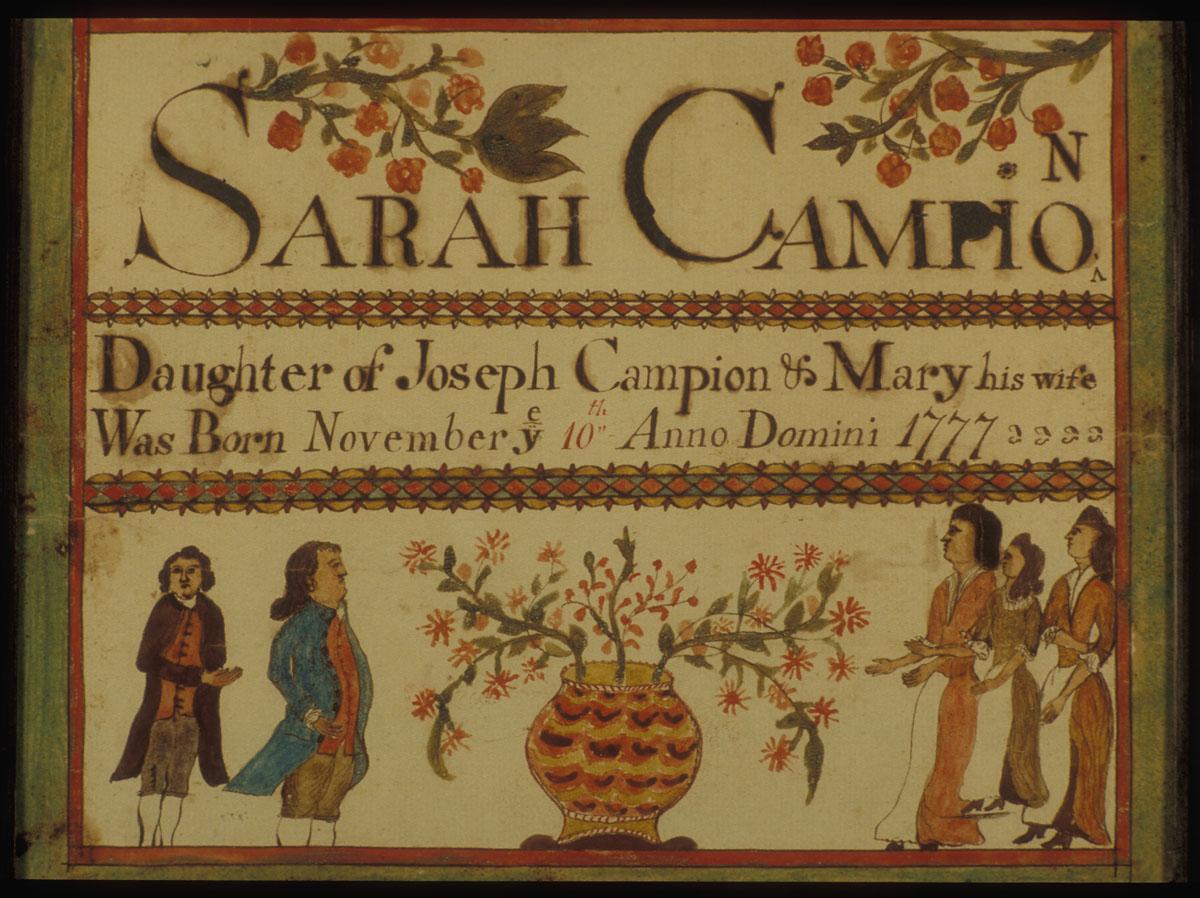 SARAH CAMPION
Daughter of Joseph Campion & Mary his wife
Was Born November yͤ 10th Anno Domini 1777